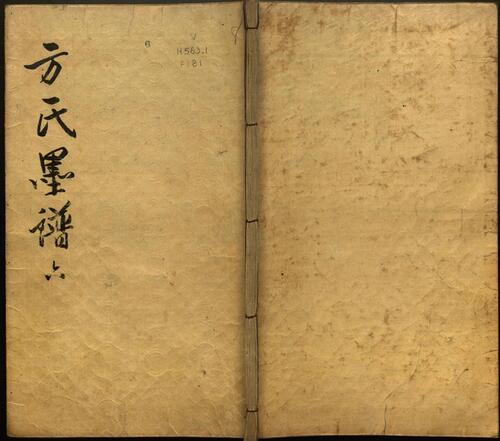 方氏墨譜 六
6
V
H563.1
F181